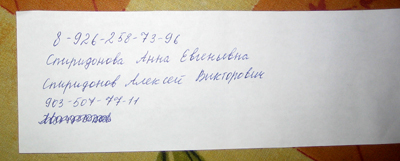 8-926-258-73-96
Спиридонова Анна Евгеньевна
Спиридонов Алексей Викторович
903-504-77-11